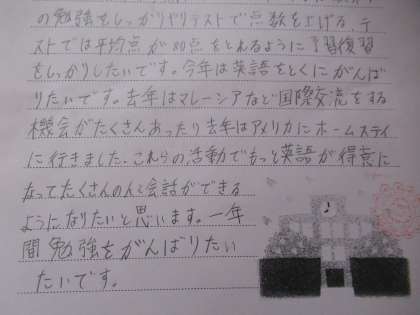 の勉強をしっかりやりテストで点数を上げる、テ
ストでは平均点が80点をとれるように予習復習
をしっかりしたいです。今年は英語をとくにがんば
りたいです。去年はマレーシアなど国際交流をする
機会がたくさんあったり去年はアメリカにホームステイ
に行きました。これらの活動でもっと英語が得意に
なってたくさんの人と会話ができる
ようになりたいと思います。一年
間勉強をがんばりたい
たいです。